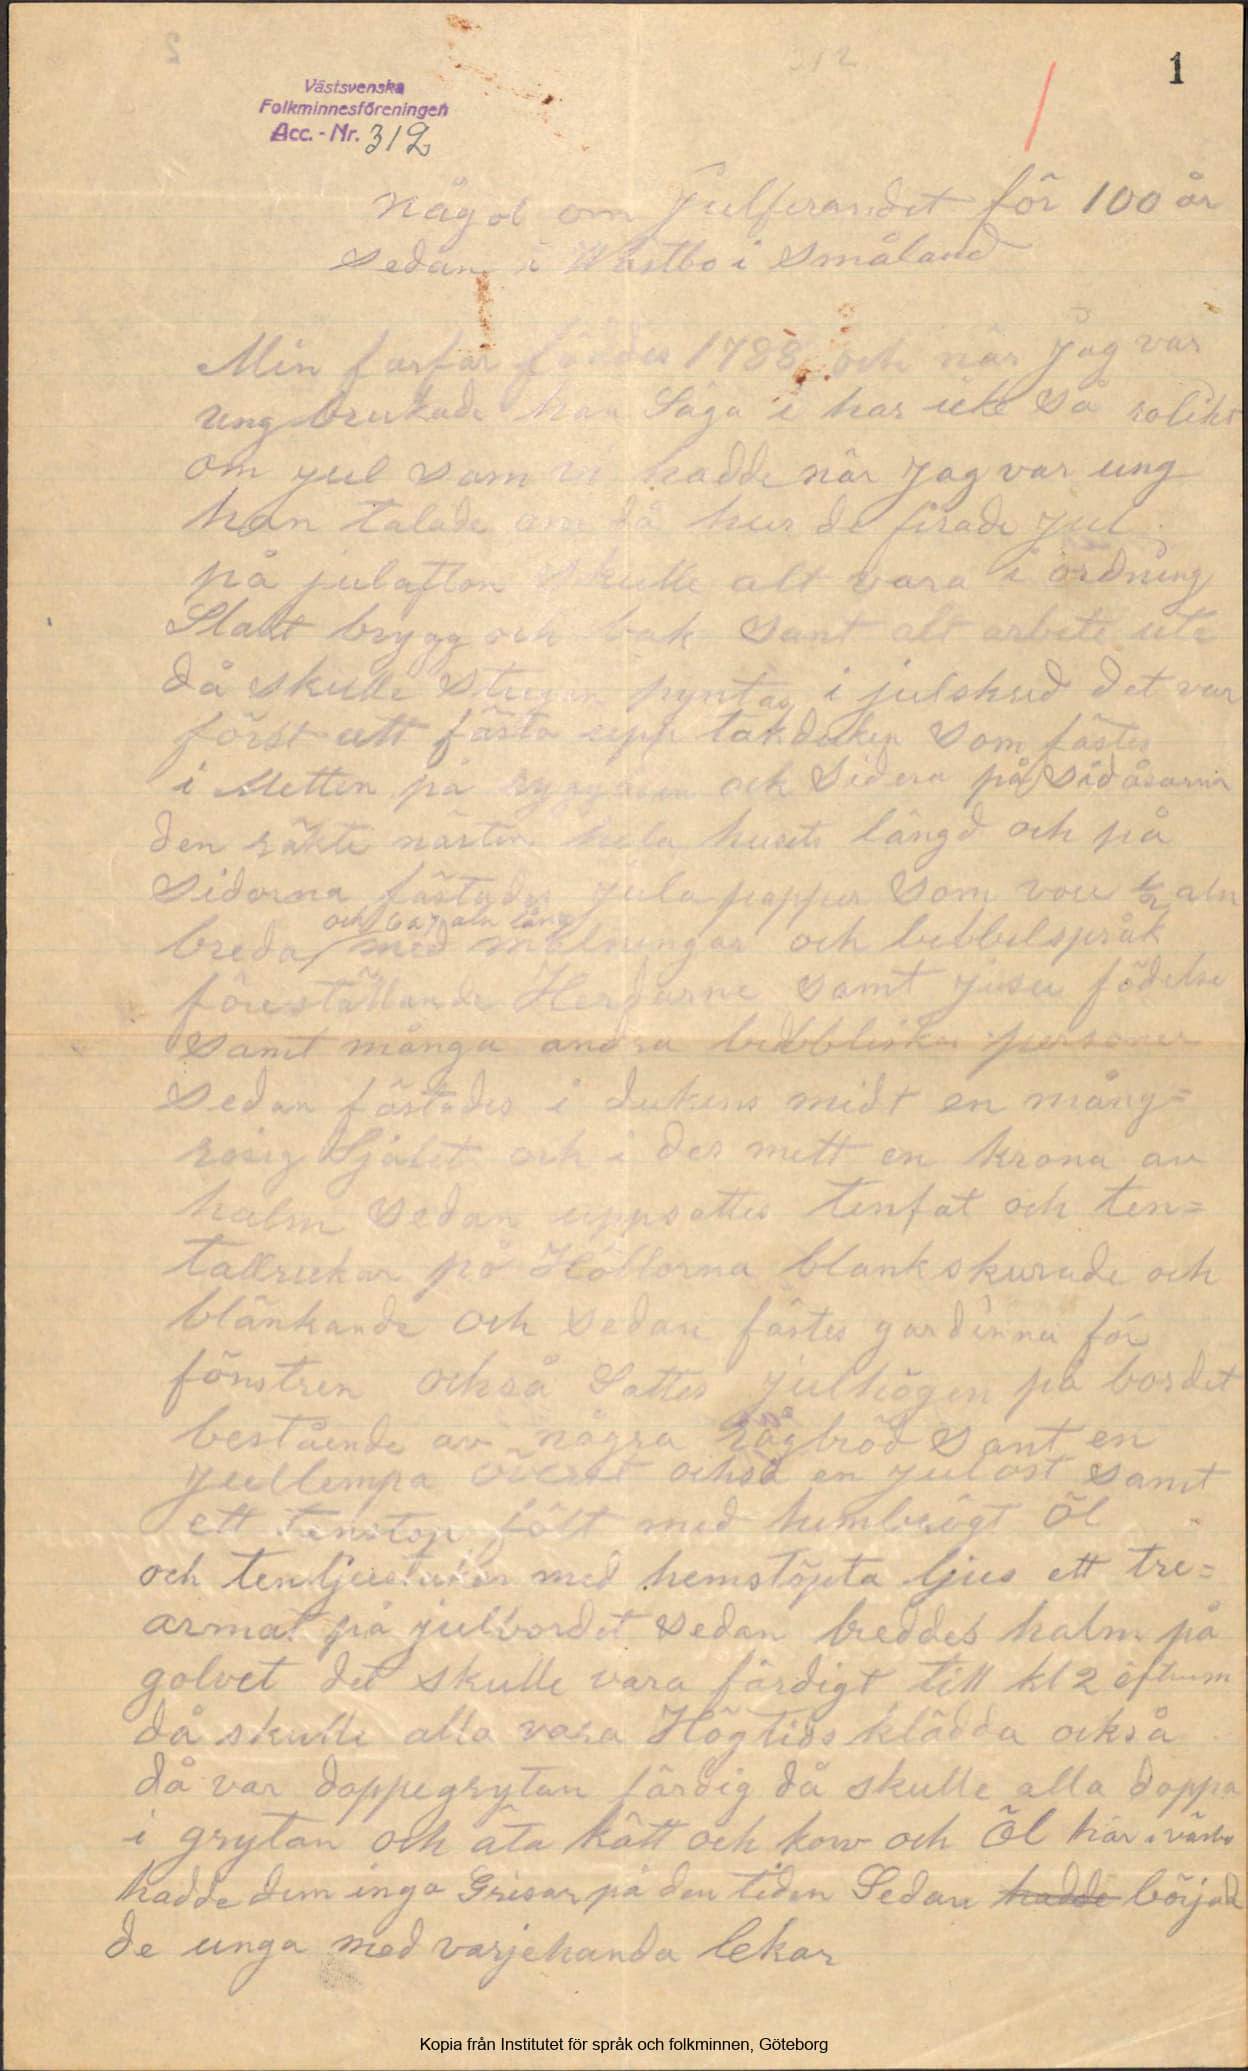 1
312
Västsvenska
Folkminnesföreningen
Acc. - Nr. 312
Något om Julfirandet för 100 år
sedan i Wästbo i Småland
Min farfar föddes 1788 och när Jag var
ung brukade han Säga i har icke så rolikt
om jul som vi hadde när Jag var ung
han talade om då hur de firade Jul
på julafton skulle alt vara i ordning
Slakt brygg och bak samt alt arbete ute
då skulle stugan pyntas i julskrud det var
först att fästa upp takduken som fästes
i Metten på ryggåsen och Sidera på Sidåsarna
den räkte nästen hela husets längd och på
sidorna fästades jula papper som voru 1/2 aln
och 6 a 7 aln lång
breda med målningar och bebbelspråk
föreställande Herdarne samt jusu födelse
samt många andra bebbliska personer
sedan fästades i dukens midt en mång=
rosig Sjalet och i des mett en krona av
halm sedan uppsattes tenfat och ten=
tallrickar på Höllorna blankskurade och
blänkande och sedan fästes gardinna för
fönstren också Sattes julhögen på bordet
bestående av några rågbröd samt en
jullempa överst också en julost samt
ett tenstop fölt med hembrögt öl
och tenljusstakar med hemstöpta ljus ett tre=
armat på julbordet sedan breddes halm på
golvet det skulle vara färdigt till kl 2 eftmm
då skulle alla vara Högtidsklädda också
då var doppegrytan färdig då skulle alla doppa
i grytan och äta kött och korv och Öl här i västbo
hadde dem inga Grisar på den tiden Sedan hadde börjad
de unga med varjehanda lekar
Kopia från Institutet för språk och folkminnen, Göteborg